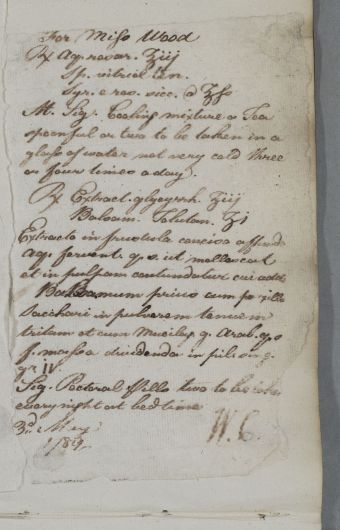 For Miss Wood
℞ Aq. rosar. ℥iij
Sp. vitriol. ten.
Syr. e ros. sicc. a ℥ſs
M. Sig. Cooling mixture a Tea
spoonful or two to be taken in a
glass of water not very cold three
or four times a day.
℞ Extract. glycyrrh. ʒiij
Balsam. Tolutan. ʒi
Extracto in frustula concisa affunde
aq. fervent. q. s. ut mollescat
et in pulpam contundatur cui adde
Balsamum prius cum pauxillo
Sacchari in pulverem tenuem
tritum et cum Mucilag. g. Arab. q. s
f. massa dividenda in pil. sing.
gr IV.
Sig. Pectoral Pills two to be taken
every night at bed time
3d. May
1819
W. C.